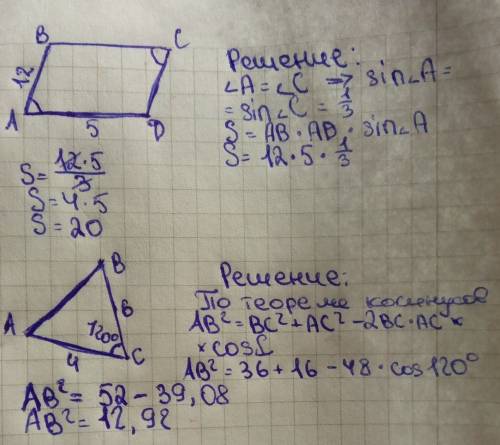 B
C
12
A
5
D
Решение:
∠A = ∠C => sin∠A =
= sin∠C = 1/3
S = AB · AB · sin∠A
S = 12 · 5 · 1/3
S = 12·5/3
S = 4·5
S = 20
B
A
6
120°
4
C
Решение:
По теореме косинусов
AB² = BC² + AC² - 2BC · AC ×
× cosL
AB² = 36 + 16 - 48 · cos120°
AB² = 52 - 39,08
AB² = 12,92